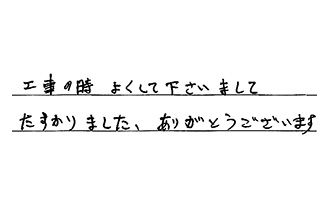 工事の時 よくして下さいまして
たすかりました、ありがとうございます